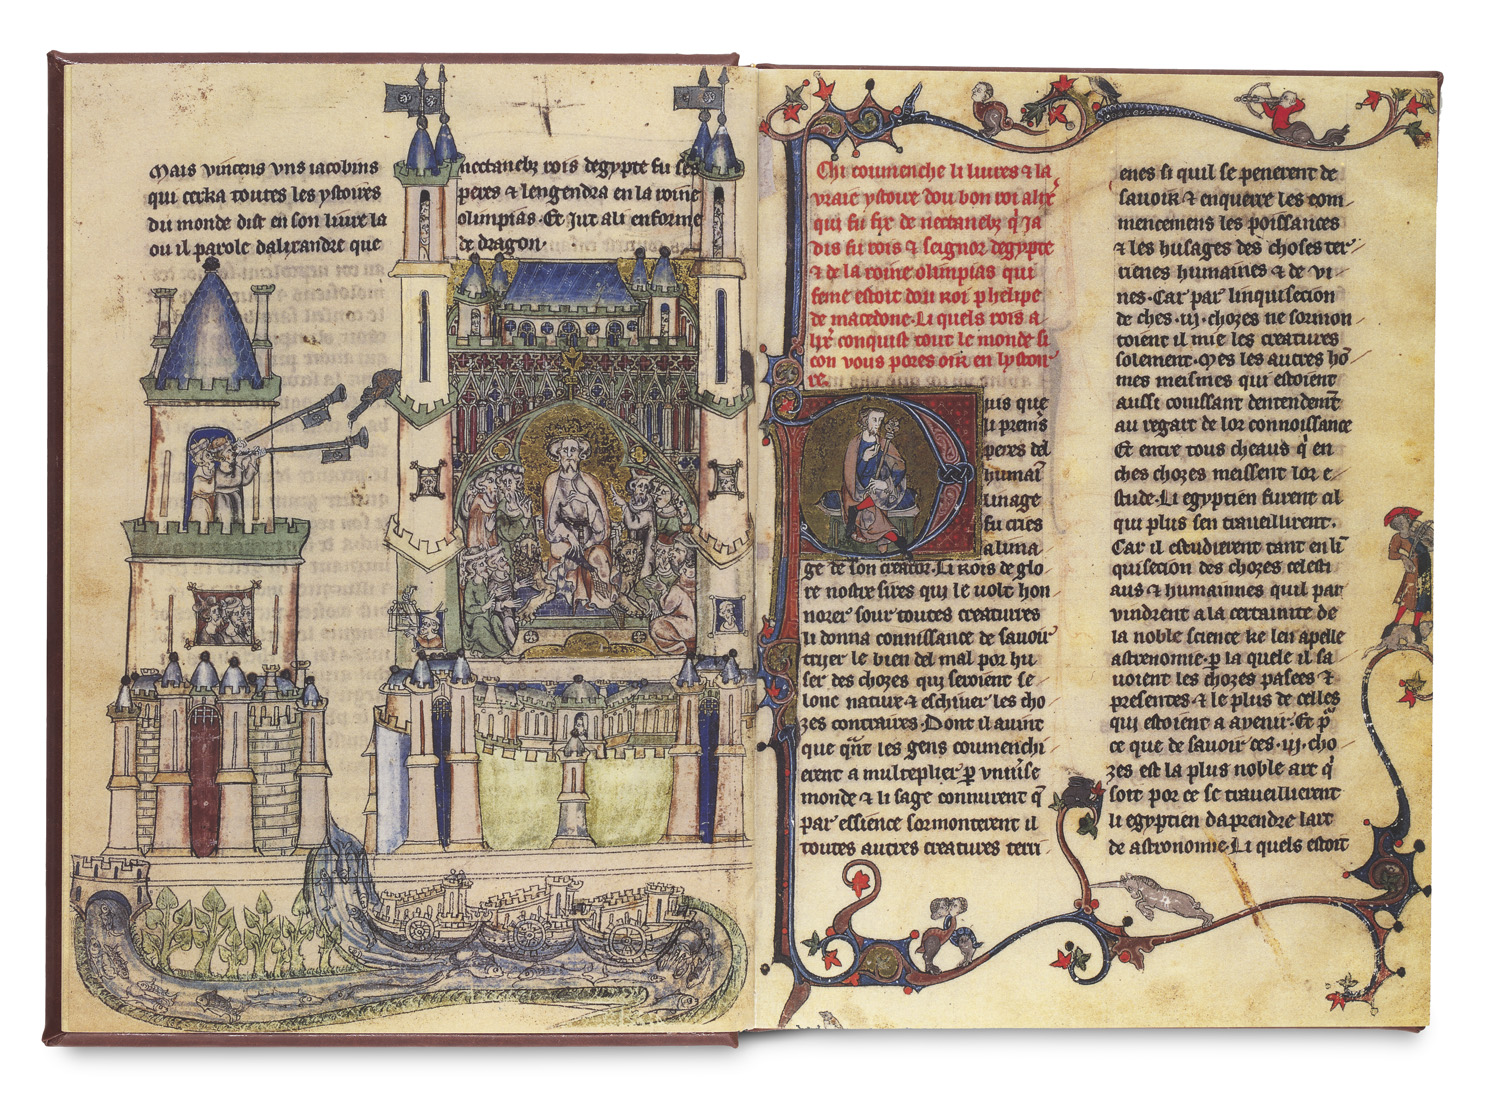 Mais vincens vns iacobins
qui cerka toutes les ystoires
du monde dist en son liure la
ou il parole dalixandre que
nectaneb rois degypte fu ses
peres & lengendra en la roine
olimpias. Et Jut a li en forme
de dragon.
Chi coumenche li liures & la
vraie ystoire dou bon roi alix'
qui fu fix de nectaneb q' ja
dis fu rois & seignor degypte
& de la roine olimpias qui
feme estoit dou roi phelipe
de macedone. Li quels rois a
lix' conquist tout le monde si
con vous pores oir en lystoi
re.
uis que
li prem's
peres del
humai
linage
fu cries
a lima
ge de son creator. Li Rois de glo
re nostre sires qui le volt hon
norer sour toutes creatures
li donna connissance de sauoir
trijer le bien del mal por hu
ser des chozes qui seroient se
lonc nature & eschiuer les cho
zes contraires. Dont il auint
que q̃nt les gens coumenchi
erent a multeplier p vniu'se
monde & li sage connurent q̃
par essience sormonterent il
toutes autres creatures terri
enes si quil se penerent de
sauoir & enquerre les com
mencemens les poissances
& les husages des choses ter
rienes humaines & de vi
nes. Car par linquisecion
de ches .iij. chozes ne sormon
toient il mie les creatures
solement. Mes les autres ho
mes meismes qui estoient
aussi conissant dentendent
au regart de lor connoissance
Et entre tous cheaus q' en
ches chozes meissent lor e
stude. Li egyptien furent cil
qui plus sen trauellirent.
Car il estudierent tant en li
quisecion des chozes celesti
aus & humainnes quil par
vindrent a la certainite de
la noble science ke len apelle
astrenomie. p la quele il sa
uoient les chozes passees &
presentes. & le plus de celles
qui estoient a auenir. Et p
ce que de sauoir ces .iij. cho
zes est la plus noble art q'
soit por ce se trauellierent
li egyptien daprendre lart
de astronomie. Li quels estoit